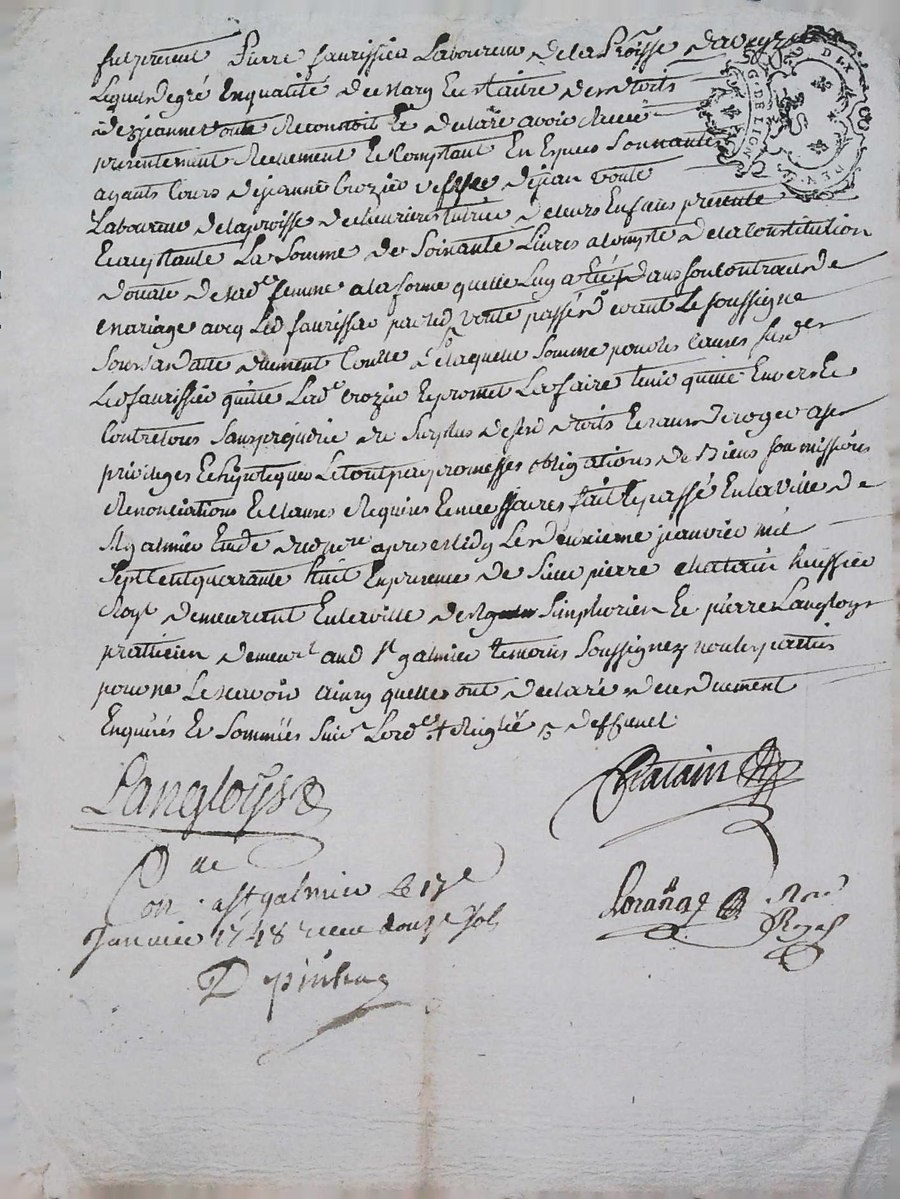 fut present Pierre faurissier Laboureur de la Proisse
Lequel de gré En qualité de mary Et maitre des droits
de jeanne voute Reconnoit Et declare avoir Receu
presentement Reellement Et Comptant En Especes Sonnantes
ayants Cours de jeanne Crozier veſve de jean voute
Laboureur de la proisse de tutrice de leurs Enfans presente
Et aceptante La Somme de Soixante Livres a Compte de la Constitution
dotale de sad. femme a la forme quelle Luy a Eté dans son Contract de
mariage avec Led faurissier par led voute passé devant Le soussigné
sous sa datte duement Controllé de laquelle Somme pour les causes susd.
Led faurissier quitte Lad. Crozier Et promet La faire tenir quitte Envers Et
Contre tous Sans prejudice du Surplus desd. droits Et sans deroger a ses
privileges Et hipoteques Le tout par promesses obligations de Biens soumissions
Renonciations Et clauses Requises Et necessaires fait Et passé En la ville de
St galmier Etude du apres midy Le deuxieme janvier mil
Sept Cent quarante huit En presence de Sieur pierre chatain huissier
Royl demeurant En la ville de St Simphorien Et pierre Langloys
pratticien demeurt aud St galmier temoins Soussignez non les parties
pour ne Le scavoir ainsy quelles ont declaré de ce duement
Enquises Et Sommées Suivt Lord.
Langloys
Chatain
Con. a St galmier le 17e
Janvier 1748 receu douze sols
Royal
G. DE LION